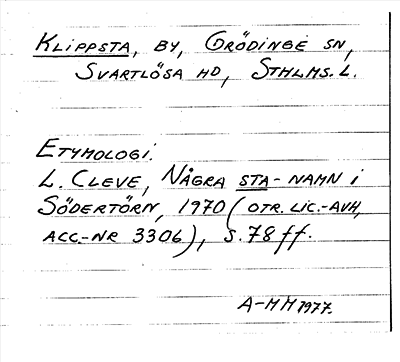 KLIPPSTA, BY, GRÖDINGE SN,
SVARTLÖSA HD, STHLMS. L.
ETYMOLOGI.
L. CLEVE, NÅGRA STA-NAMN I
SÖDERTÖRN, 1970 (OTR. LIC.-AVH,
ACC.-NR 3306), S. 78 ff.
A-MM 1977.